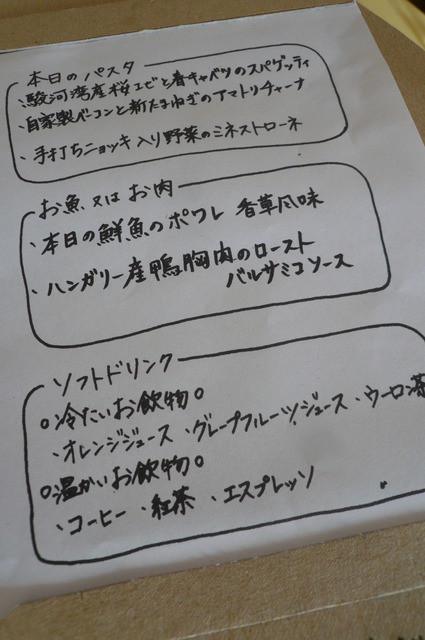 本日のパスタ
・駿河湾産桜エビと春キャベツのスパゲッティ
・自家製ベーコンと新たまねぎのアマトリチャーナ
・手打ちニョッキ入り野菜のミネストローネ
お魚又はお肉
・本日の鮮魚のポワレ 香草風味
・ハンガリー産鴨胸肉のロースト
バルサミコソース
ソフトドリンク
○冷たいお飲物○
・オレンジジュース ・グレープフルーツジュース ・ウーロン茶
○温かいお飲物○
・コーヒー ・紅茶 ・エスプレッソ